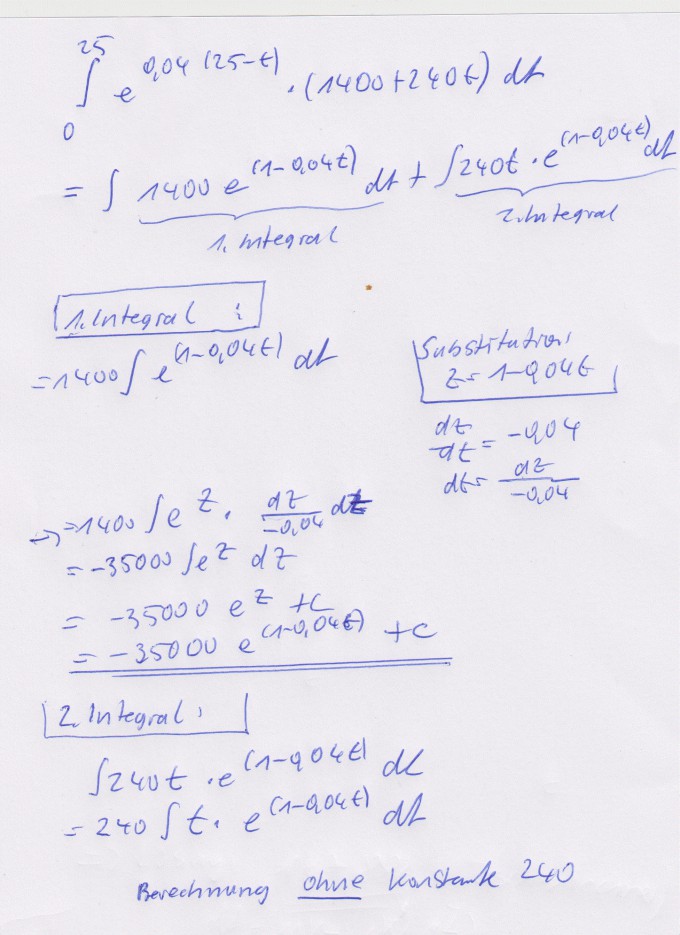 25
∫ e^0,04 (25-t) · (1400+240t) dt
0
= ∫ 1400 e^(1-0,04t) dt + ∫ 240t · e^(1-0,04t) dt
1. Integral 2. Integral
1. Integral :
= 1400 ∫ e^(1-0,04t) dt
Substitution:
z = 1-0,04t
dz/dt = -0,04
dt = dz/-0,04
→ = 1400 ∫ e^z · dz/-0,04
= -35000 ∫ e^z dz
= -35000 e^z + C
= -35000 e^(1-0,04t) + C
2. Integral :
∫ 240t · e^(1-0,04t) dt
= 240 ∫ t · e^(1-0,04t) dt
Berechnung ohne Konstante 240